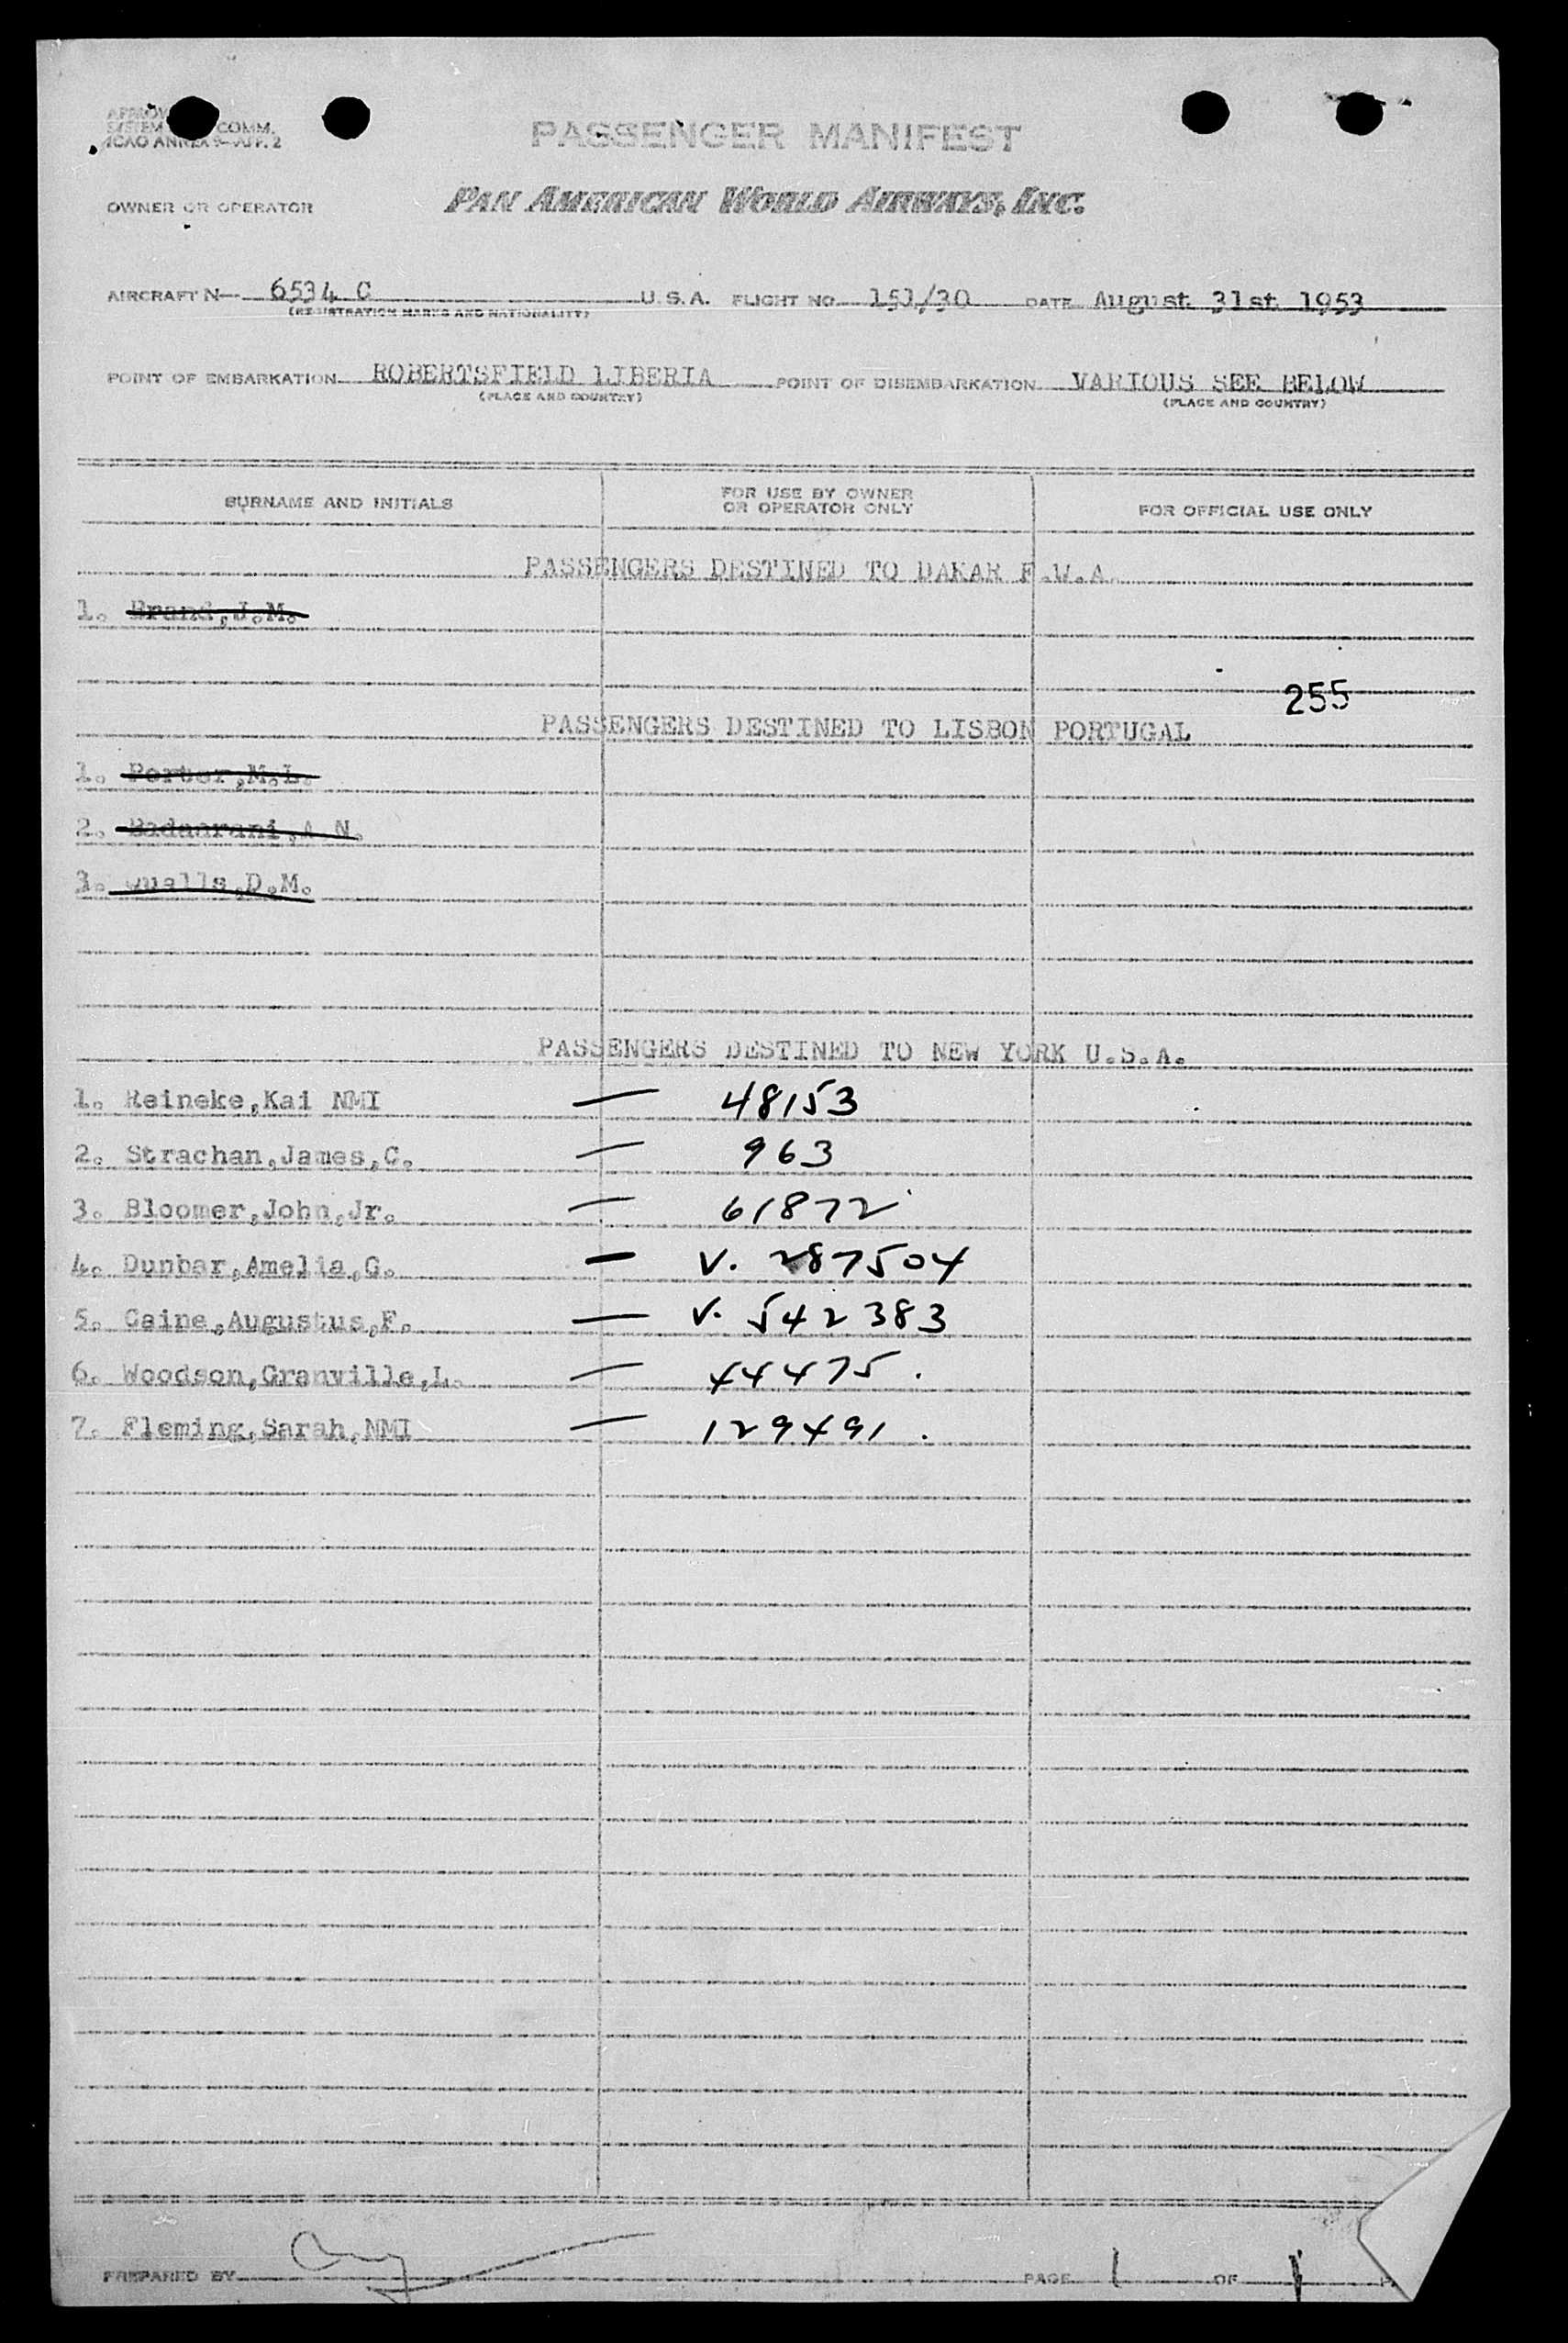 SYSTEM COMM.
ICAO ANNEX 9—APP. 2
PASSENGER MANIFEST
OWNER OR OPERATOR PAN AMERICAN WORLD AIRWAYS, INC.
AIRCRAFT N— 6534 C U.S.A. FLIGHT NO. 151/30 DATE August 31st 1953
(REGISTRATION MARKS AND NATIONALITY)
POINT OF EMBARKATION ROBERTSFIELD LIBERIA POINT OF DISEMBARKATION VARIOUS SEE BELOW
(PLACE AND COUNTRY) (PLACE AND COUNTRY)
SURNAME AND INITIALS FOR USE BY OWNER OR OPERATOR ONLY FOR OFFICIAL USE ONLY
PASSENGERS DESTINED TO DAKAR F.W.A.
1. Brand,J.M.
255
PASSENGERS DESTINED TO LISBON PORTUGAL
1. Porter,M.L.
2. Badaarani,A N.
3. Qualls,D.M.
PASSENGERS DESTINED TO NEW YORK U.S.A.
1. Reineke,Kai NMI — 48153
2. Strachan,James,C. — 963
3. Bloomer,John,Jr. — 61872
4. Dunbar,Amelia,G. — V. 287504
5. Caine,Augustus,F. — V. 542383
6. Woodson,Granville,L. — 44475.
7. Fleming,Sarah,NMI — 129491.
PREPARED BY PAGE 1 OF 1